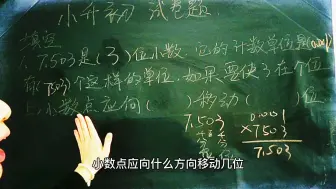 小升初 试卷题.
填空
1. 7.503是(3)位小数, 它的计数单位是(0.001)
有(7503)个这样的单位, 如果要使3在个位
上小数点应向( )移动( )位
7.503
十百千
分分分
0.001
×7503
7.503
小数点应向什么方向移动几位